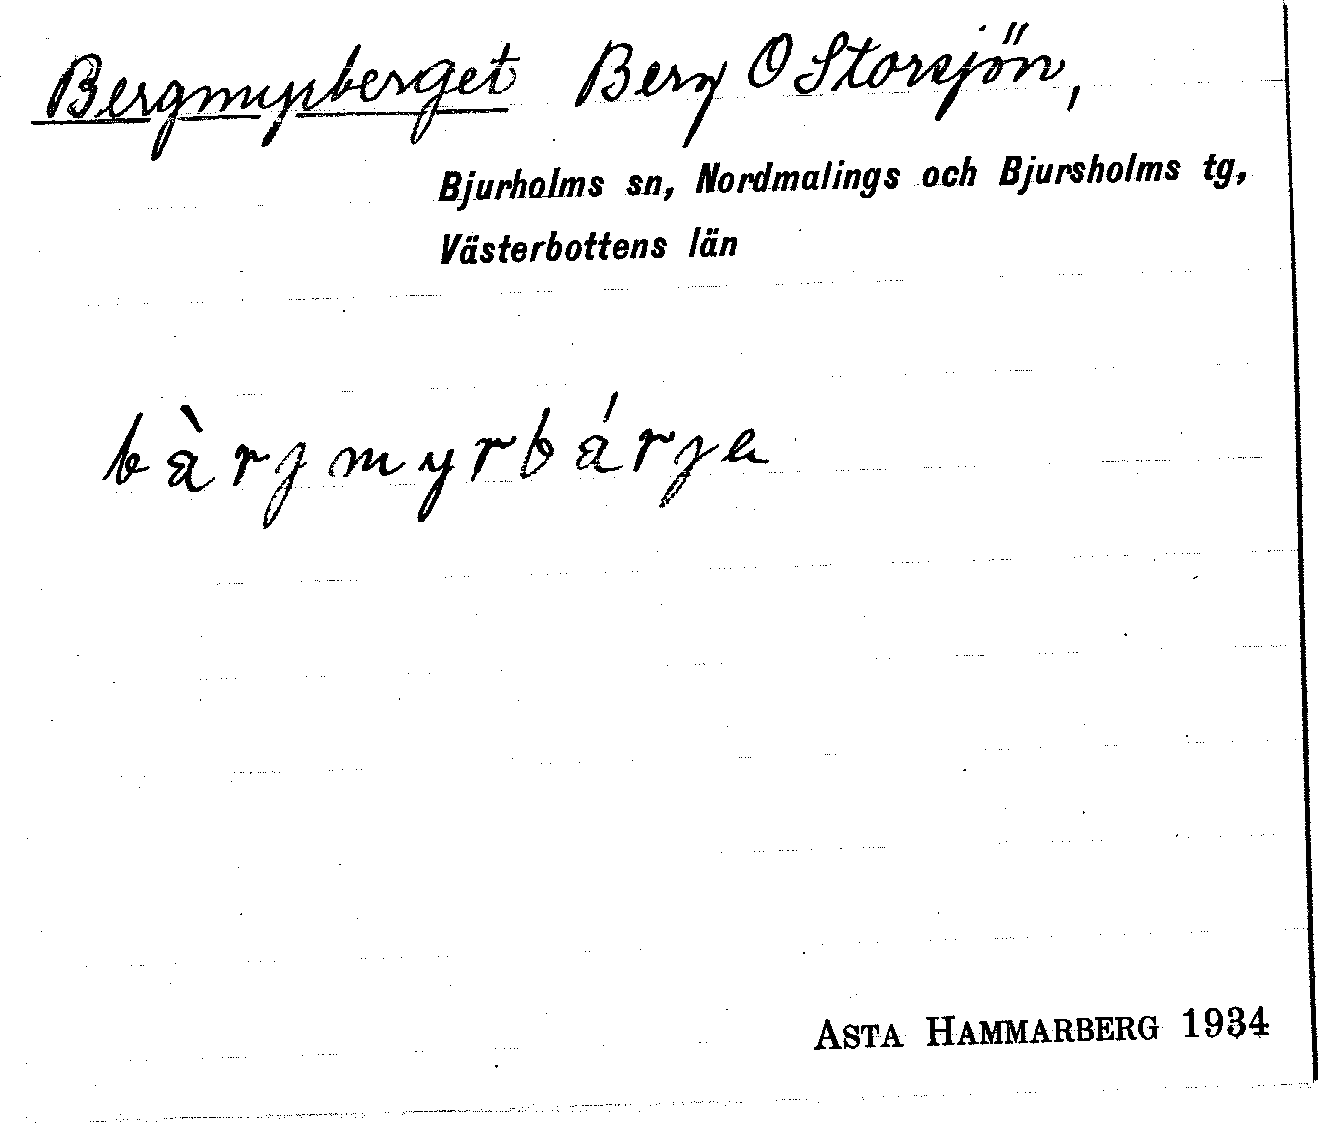 Bergmyrberget Berg O Storsjön,
Bjurholms sn, Nordmalings och Bjursholms tg,
Västerbottens län
bàrjmyrbárja
ASTA HAMMARBERG 1934